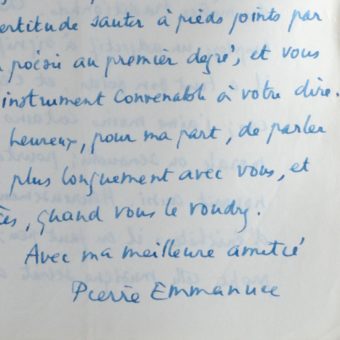 certitude sauter à pieds joints par
poésie au premier degré, et vous
instrument convenable à votre dire.
heureux, pour ma part, de parler
plus longuement avec vous, et
ès, quand vous le voudrez.
Avec ma meilleure amitié
Pierre Emmanuel